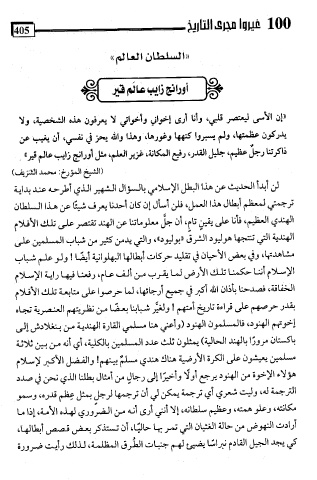 100 غيروا مجرى التاريخ
405
«السلطان العالم»
أورانج زايب عالم قير
«إن الأسى ليعتصر قلبي، وأنا أرى إخواني وأخواتي لا يعرفون هذه الشخصية، ولا
يدركون عظمتها، ولم يسبروا كنهها وغورها، وهذا والله يحز في نفسي، أن يغيب عن
ذاكرتنا رجلٌ عظيم، جليل القدر، رفيع المكانة، غزير العلم، مثل أورانج زايب عالم قير»
(الشيخ المؤرخ: محمد الشريف)
لن أبدأ الحديث عن هذا البطل الإسلامي بالسؤال الشهير الذي أطرحه عند بداية
ترجمتي لمعظم أبطال هذا العمل، فلن أسأل إن كان أحدنا يعرف شيئًا عن هذا السلطان
الهندي العظيم، فأنا على يقينٍ تام، أن جلَّ معلوماتنا عن الهند تقتصر على تلك الأفلام
الهندية التي تنتجها هوليود الشرق «بوليود»، والتي يدمن كثير من شباب المسلمين على
مشاهدتها، وفي بعض الأحيان في تقليد حركات أبطالها البهلوانية أيضًا! ولو علم شباب
الإسلام أننا حكمنا تلك الأرض لما يقرب من ألف عام، رفعنا فيها راية الإسلام
الخفاقة، فصدحنا بأذان الله أكبر في جميع أرجائها، لما حرصوا على متابعة تلك الأفلام
بقدر حرصهم على قراءة تاريخ أمتهم! ولغيَّر شبابنا بعضًا من نظريتهم العنصرية تجاه
إخوتهم الهنود، فالمسلمون الهنود (وأعني هنا مسلمي القارة الهندية من بنغلادش إلى
باكستان مرورًا بالهند الحالية) يمثلون ثلث عدد المسلمين بالكلية، أي أنه من بين ثلاثة
مسلمين يعيشون على الكرة الأرضية هناك هندي مسلم بينهم! والفضل الأكبر لإسلام
هؤلاء الإخوة من الهنود يرجع أولًا وأخيرًا إلى رجالٍ من أمثال بطلنا الذي نحن في صدد
الترجمة له، وليت شعري أي ترجمة يمكن لي أن أترجمها لرجلٍ بمثل عِظم قدره، وسمو
مكانته، وعلو همته، وعظيم سلطانه، إلا أنني أرى أنه من الضروري لهذه الأمة، إذا ما
أرادت النهوض من حالة الغثيان التي تمر بها حاليًا، أن تستذكر بعض قصص أبطالها،
كي يجد الجيل القادم نبراسًا يضيئ لهم جنبات الطُرق المظلمة، لذلك رأيت ضرورة